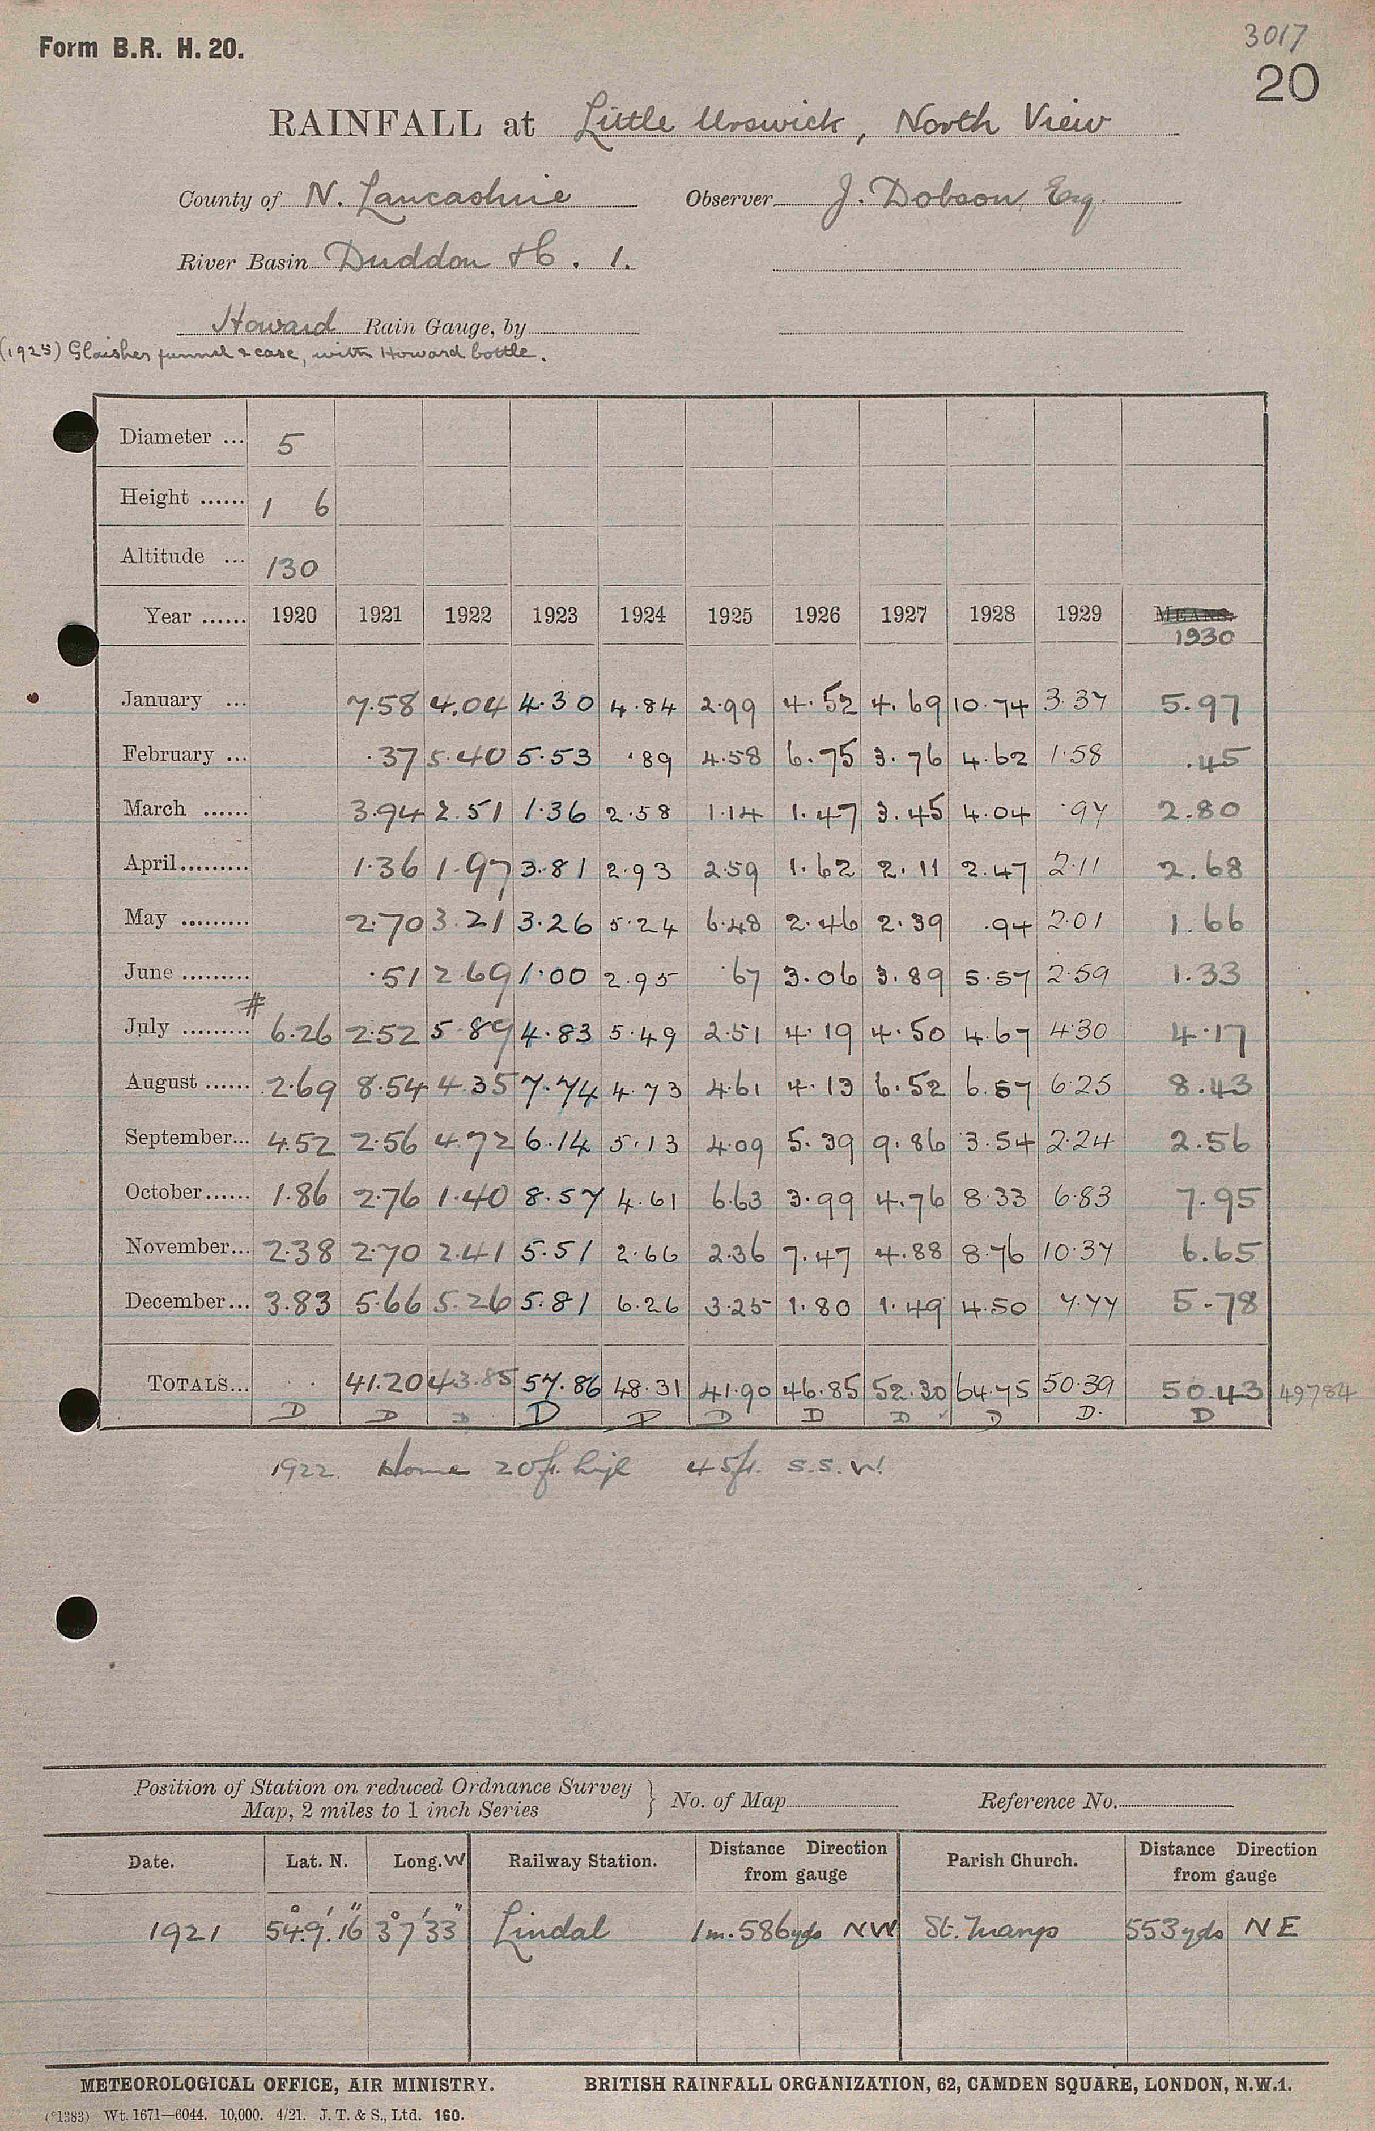 Form B.R. H. 20.
3017
20
RAINFALL at Little Urswick, North View
County of N. Lancashire Observer J. Dobson Esq.
River Basin Duddon &c. 1.
Howard Rain Gauge, by
(1925) Glaisher funnel & case, with Howard bottle.
Diameter ... 5
Height ...... 1 6
Altitude ... 130
Year ...... 1920 1921 1922 1923 1924 1925 1926 1927 1928 1929 MEANS.
1930
January ... 7.58 4.04 4.30 4.84 2.99 4.52 4.69 10.74 3.37 5.97
February ... .37 5.40 5.53 .89 4.58 6.75 3.76 4.62 1.58 .45
March ...... 3.94 2.51 1.36 2.58 1.14 1.47 3.45 4.04 .97 2.80
April......... 1.36 1.97 3.81 2.93 2.59 1.62 2.11 2.47 2.11 2.68
May ......... 2.70 3.21 3.26 5.24 6.48 2.46 2.39 .94 2.01 1.66
June ......... .51 2.69 1.00 2.95 .67 3.06 3.89 5.57 2.59 1.33
July ......... # 6.26 2.52 5.89 4.83 5.49 2.51 4.19 4.50 4.67 4.30 4.17
August ...... 2.69 8.54 4.35 7.74 4.73 4.61 4.13 6.52 6.57 6.25 8.43
September... 4.52 2.56 4.72 6.14 5.13 4.09 5.39 9.86 3.54 2.24 2.56
October...... 1.86 2.76 1.40 8.57 4.61 6.63 3.99 4.76 8.33 6.83 7.95
November... 2.38 2.70 2.41 5.51 2.66 2.36 7.47 4.88 8.76 10.37 6.65
December... 3.83 5.66 5.26 5.81 6.26 3.25 1.80 1.49 4.50 7.77 5.78
TOTALS... . . 41.20 43.85 57.86 48.31 41.90 46.85 52.30 64.75 50.39 50.43 49784
D D D D D D D D D D. D
1922. Home 20ft. high 45ft. S.S.W.
Position of Station on reduced Ordnance Survey
Map, 2 miles to 1 inch Series } No. of Map Reference No.
Date. Lat. N. Long. W Railway Station. Distance Direction from gauge Parish Church. Distance Direction from gauge
1921 54° 9' 16" 3° 7' 33" Lindal 1m. 586yds NW St. Marys 553yds NE
METEOROLOGICAL OFFICE, AIR MINISTRY. BRITISH RAINFALL ORGANIZATION, 62, CAMDEN SQUARE, LONDON, N.W.1.
(*1383) Wt. 1671—6044. 10,000. 4/21. J. T. & S., Ltd. 160.